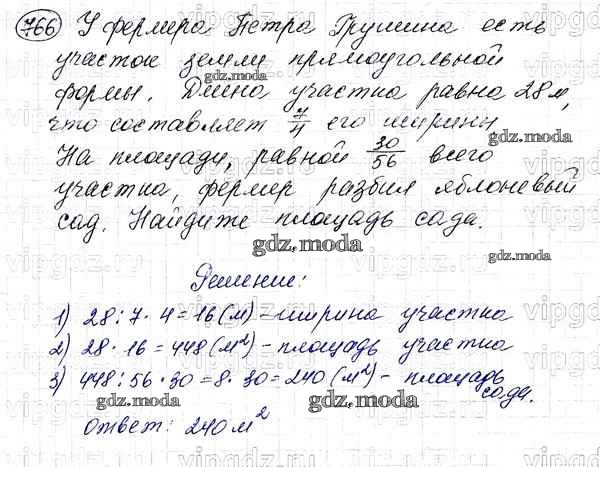 766 У фермера Петра Грушина есть
участок земли прямоугольной
gdz.moda
формы. Длина участка равна 28 м,
что составляет 7/4 его ширины
gdz.moda
На площади, равной 30/56 всего
участка, фермер разбил яблоневый
сад. Найдите площадь сада.
gdz.moda
gdz.moda
Решение:
1) 28 : 7 · 4 = 16 (м) - ширина участка
2) 28 · 16 = 448 (м²) - площадь участка
3) 448 : 56 · 30 = 8 · 30 = 240 (м²) - площадь
сада.
gdz.moda
gdz.moda
ответ: 240 м²